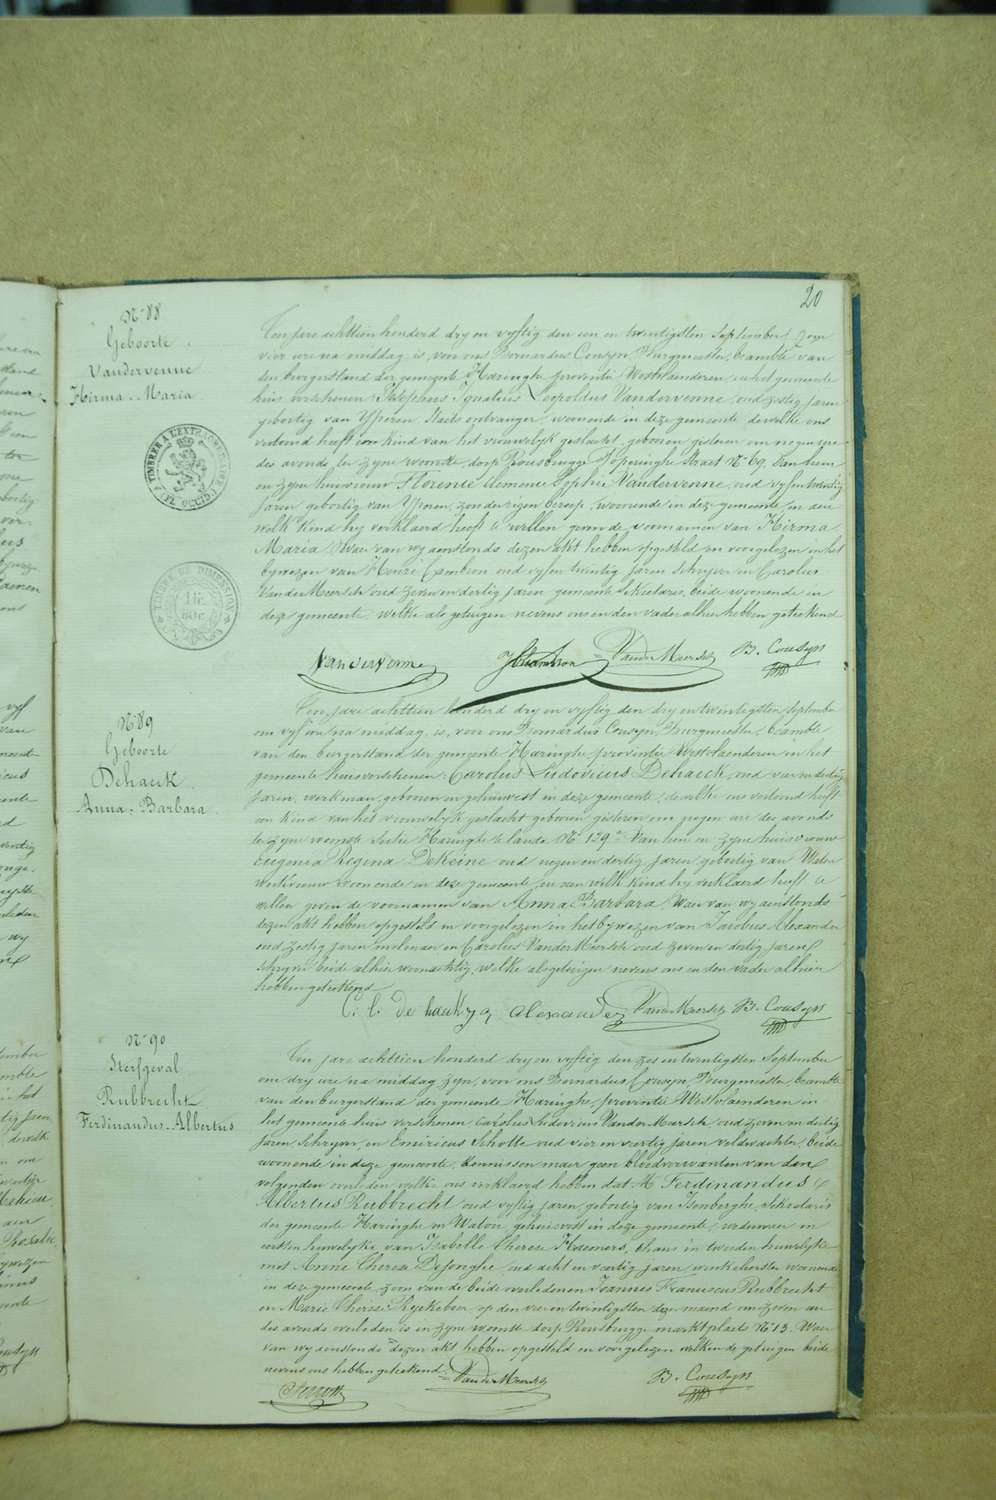 20
N° 88
Geboorte
Vandervenne
Hirma Maria
Ten jare achttien honderd dry en vyftig den een en twintigsten September zyn
vier ure na middag is, voor ons Bernardus Cousyn Burgmeester, beambte van
den burgerstand der gemeente Haringhe provintie Westvlaenderen in het gemeente
huis verschenen Josephus Ignatius Leopoldus Vandervenne, oud zestig jaren
geboortig van Yperen Staets ontvanger, woonende in deze gemeente dewelke ons
vertoond heeft een kind van het vrouwelyk geslacht, geboren gisteren om negen ure
des avonds, ter zyne woonste, dorp Rousbrugge Poperinghe Straet N° 69, van hem
en zyne huisvrouw Florence Clemence Sophie Vandervenne, oud vyf en twintig
jaren geboortig van Yperen, zonder eigen beroep, woonende in deze gemeente, en aen
welk kind hy verklaerd heeft te willen geven de voornamen van Hirma
Maria. Waer van wy aenstonds dezen akt hebben opgesteld en voorgelezen in het
bywezen van Henri Cambron oud vyf en twintig jaren Schryver en Carolus
VanderMeersch oud zeven en dertig jaren gemeente Sekretaris, beide woonende in
deze gemeente, welke als getuigen nevens ons en den vader alhier hebben geteekend
Vandervenne HCambron VanderMeersch B. Cousyn
N° 89
Geboorte
Dehaeck
Anna Barbara
Ten jare achttien honderd dry en vyftig den dry en twintigsten September
om vyf ure na middag, is, voor ons Bernardus Cousyn Burgmeester, beambte
van den burgerstand der gemeente Haringhe, provintie Westvlaenderen in het
gemeente huis verschenen Carolus Ludovicus Dehaeck, oud vier en dertig
jaren, werkman, geboren en gehuisvest in deze gemeente, dewelke ons vertoond heeft
een kind van het vrouwelyk geslacht geboren gisteren om negen ure des avonds
te zyne woonste Sectie Haringhe te lande N° 129 van hem en zyne huisvrouw
Eugenia Regina DeKeine oud negen en dertig jaren geboortig van Watou
werkvrouw woonende in deze gemeente, en aen welk kind hy verklaerd heeft te
willen geven de voornamen van Anna Barbara. Waer van wy aenstonds
dezen akt hebben opgesteld en voorgelezen in het bywezen van Jacobus Alexander
oud zestig jaren molenaer, en Carolus VanderMeersch oud zeven en dertig jaren
schryver beide alhier woonachtig, welke als getuigen nevens ons en den vader alhier
hebben geteekend
C. L. De haeck J a, alexander VanderMeersch B. Cousyn
N° 90
Sterfgeval
Rubbrecht
Ferdinandus Albertus
Ten jare achttien honderd dry en vyftig den zes en twintigsten September
om dry ure na middag zyn, voor ons Bernardus Cousyn, Burgmeester, beambte
van den burgerstand der gemeente Haringhe, provintie Westvlaenderen in
het gemeente huis verschenen Carolus Ludovicus VanderMeersch oud zeven en dertig
jaren schryver, en Emiricus Scholte oud vier en veertig jaren veldwachter, beide
woonende in deze gemeente, kennissen maer geen bloedverwanten van den
volgenden overleden, welke ons verklaerd hebben dat M Ferdinandus
Albertus Rubbrecht oud vyftig jaren, geboortig van Isenberghe, Sekretaris
der gemeente Haringhe en Watou, gehuisvest in deze gemeente, weduwaer in
eersten huwelyke van Isabelle Therese Haemers, thans in tweeden huwelyke
met Anne Theresa DeJonghe oud acht en veertig jaren, winkelierster, woonende
in deze gemeente, zoon van de beide overledenen Joannes Franciscus Rubbrecht
en Marie Therese Ryckeboer, op den vier en twintigsten dezer maend om zeven ure
des avonds overleden is in zyne woonste dorp Rousbrugge marktplaets N° 13. Waer
van wy aenstonds dezen akt hebben opgesteld en voorgelezen welken de getuigen beide
nevens ons hebben geteekend.
VanderMeersch B. Cousyn